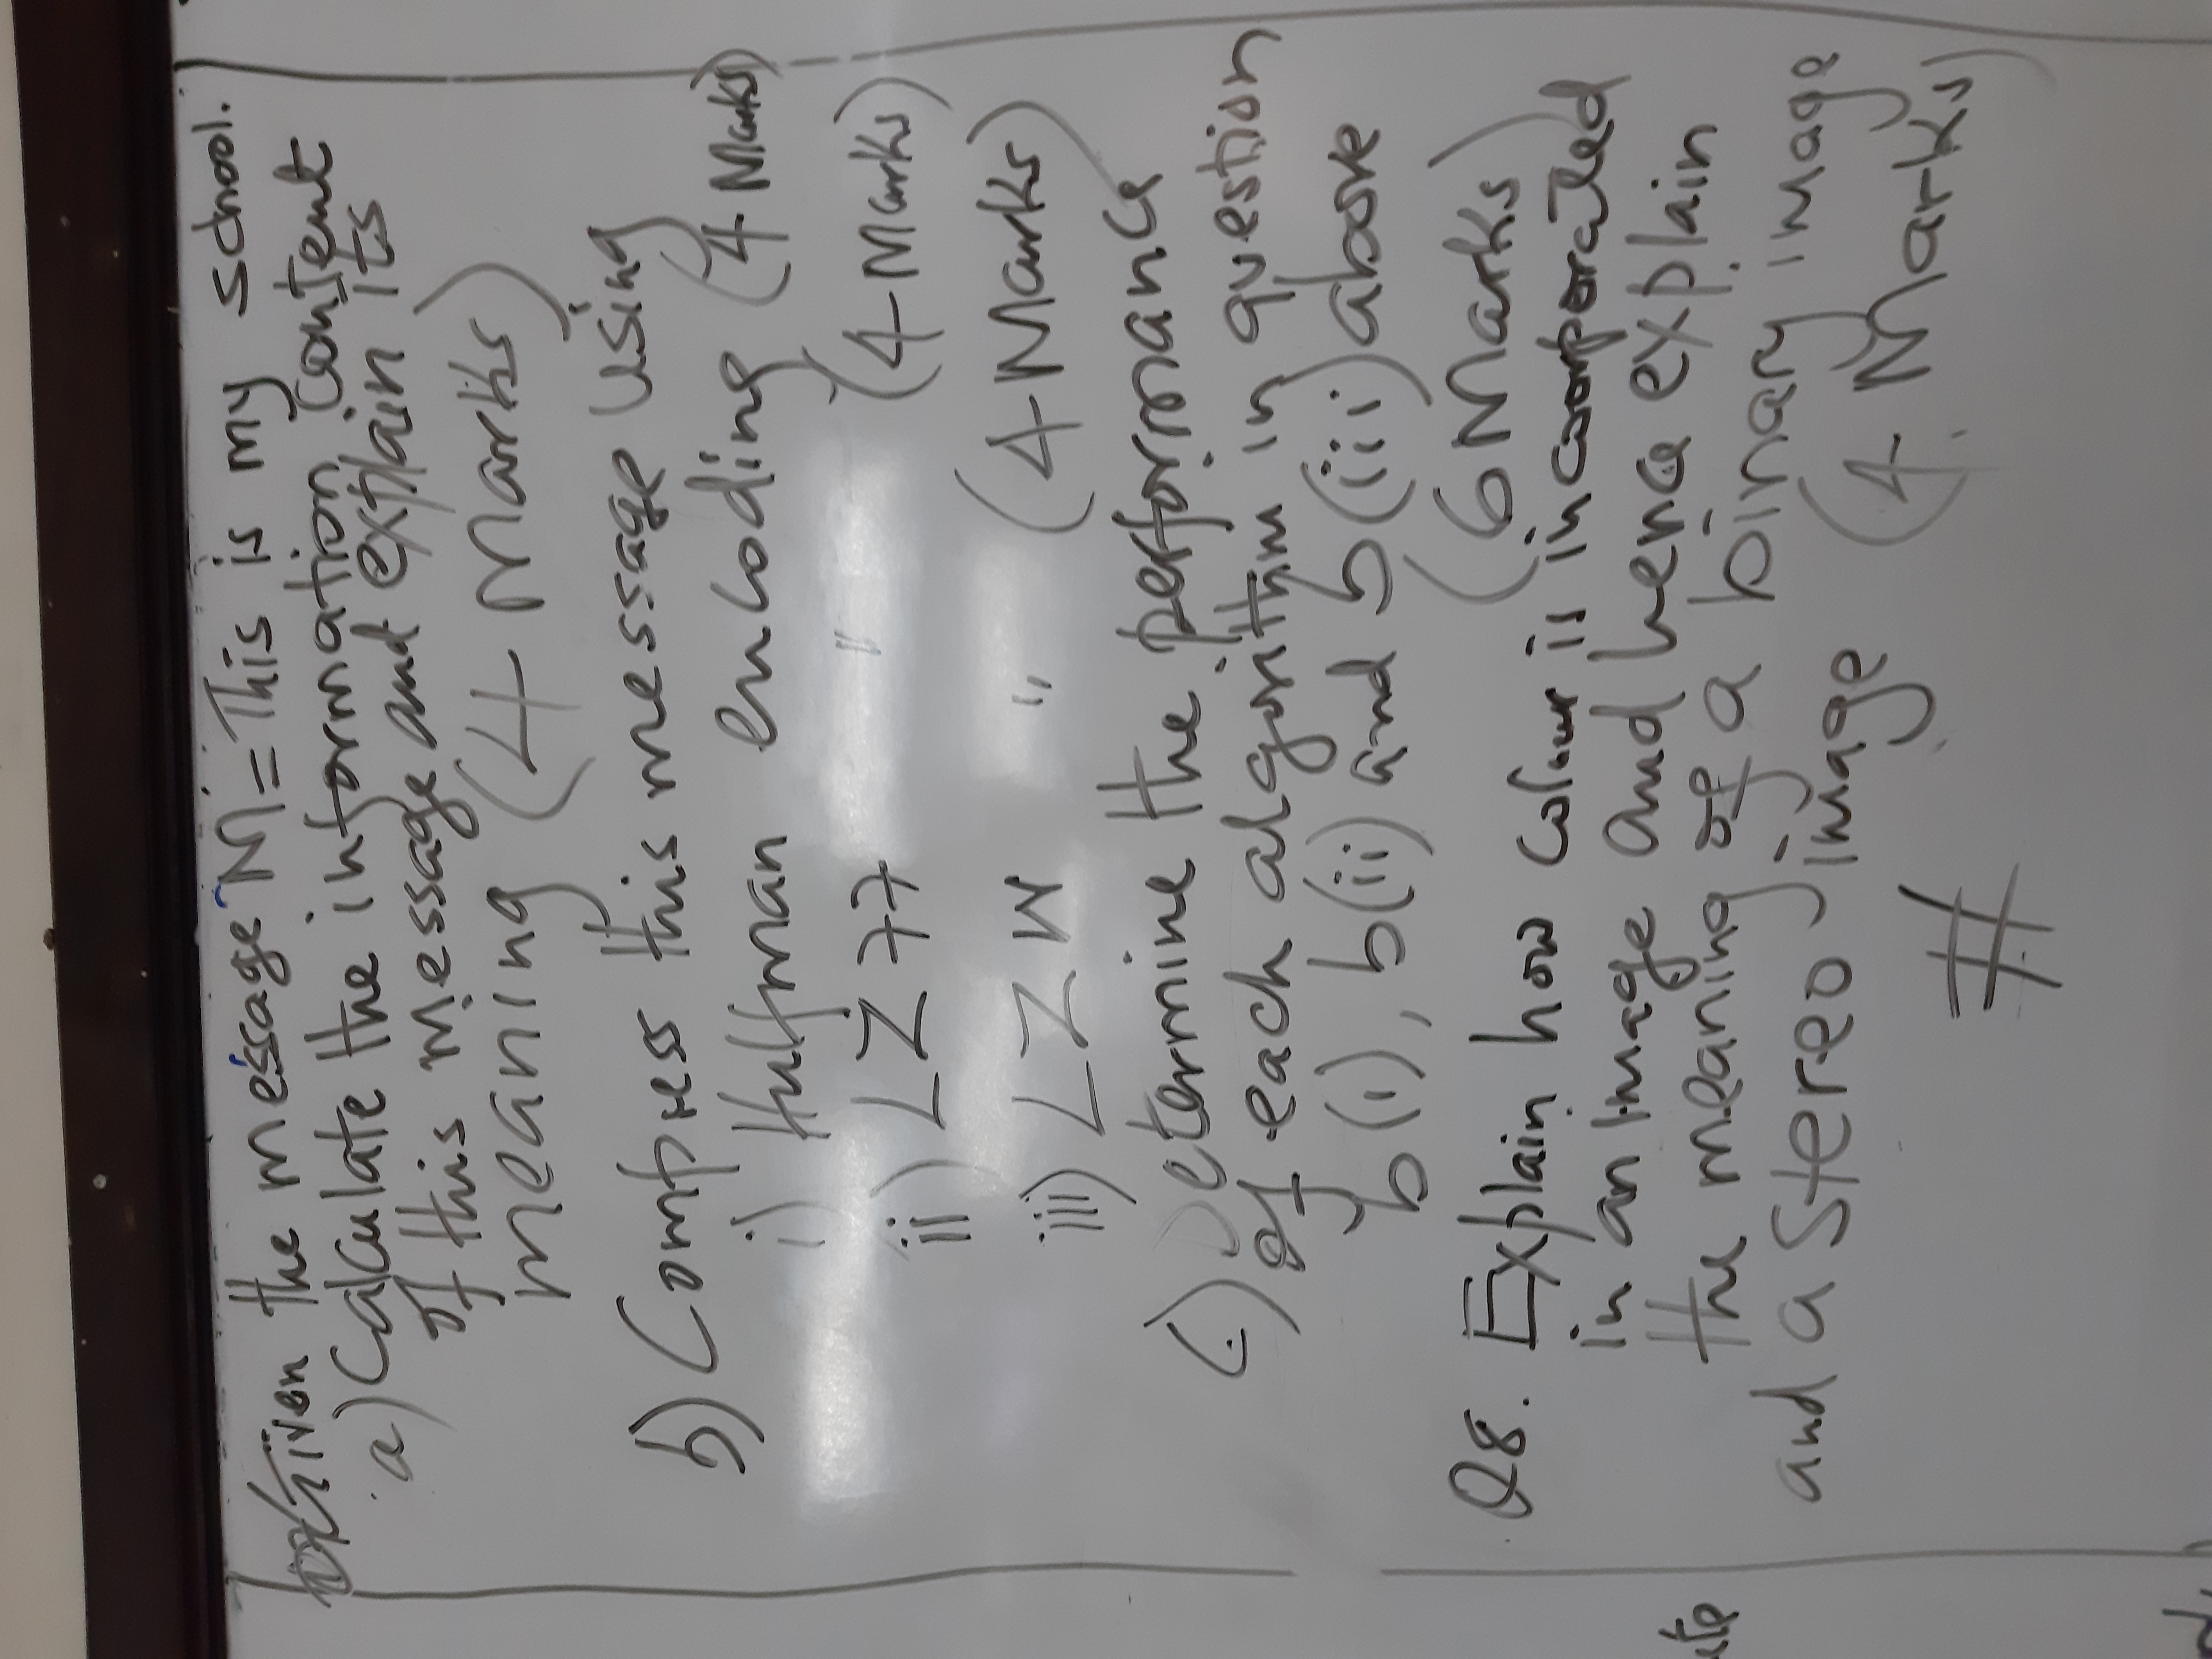 Given the message M = This is my school.
a) Calculate the information content
of this message and explain its
meaning (4 Marks)
b) Compress this message using
i) Huffman encoding (4 Marks)
ii) LZ77 " (4 Marks)
iii) LZW " (4 Marks)
c.) Determine the performance
of each algorithm in question
b(i), b(ii) and b(iii) above
(6 Marks)
Q8. Explain how colour is incoorporated
in an image and hence explain
the meaning of a binary image
and a stereo image (4 Marks)
#